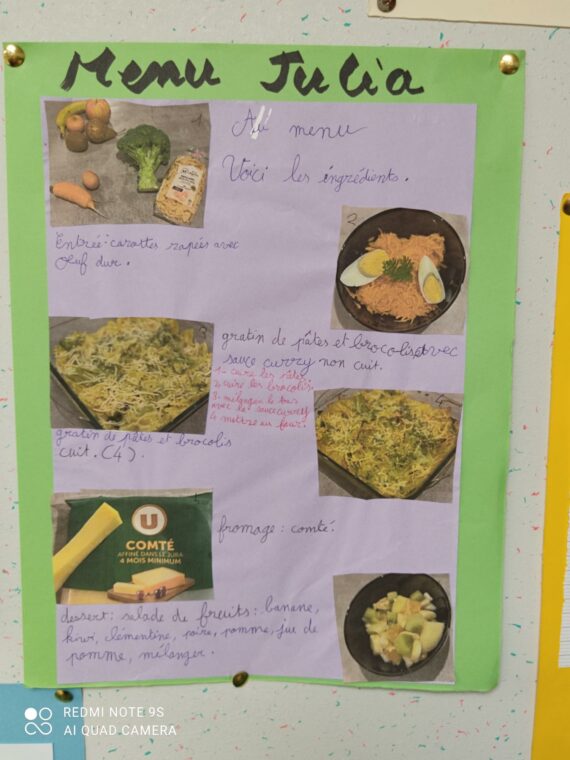 Menu Julia
Au menu
Voici les ingrédients.
2
Entrée: carottes rapées avec
Oeuf dur.
gratin de pâtes et brocolis avec
sauce curry non cuit.
1- cuire les pâtes
2 cuire les brocolis.
3- mélanger le tous
avec la sauce curry
4 mettre au four.
gratin de pâtes et brocolis
cuit. (4).
U
COMTÉ
AFFINÉ DANS LE JURA
4 MOIS MINIMUM
fromage : comté.
dessert: salade de fruits: banane,
kiwi, clémentine, poire, pomme, jus de
pomme, mélanger.
REDMI NOTE 9S
AI QUAD CAMERA